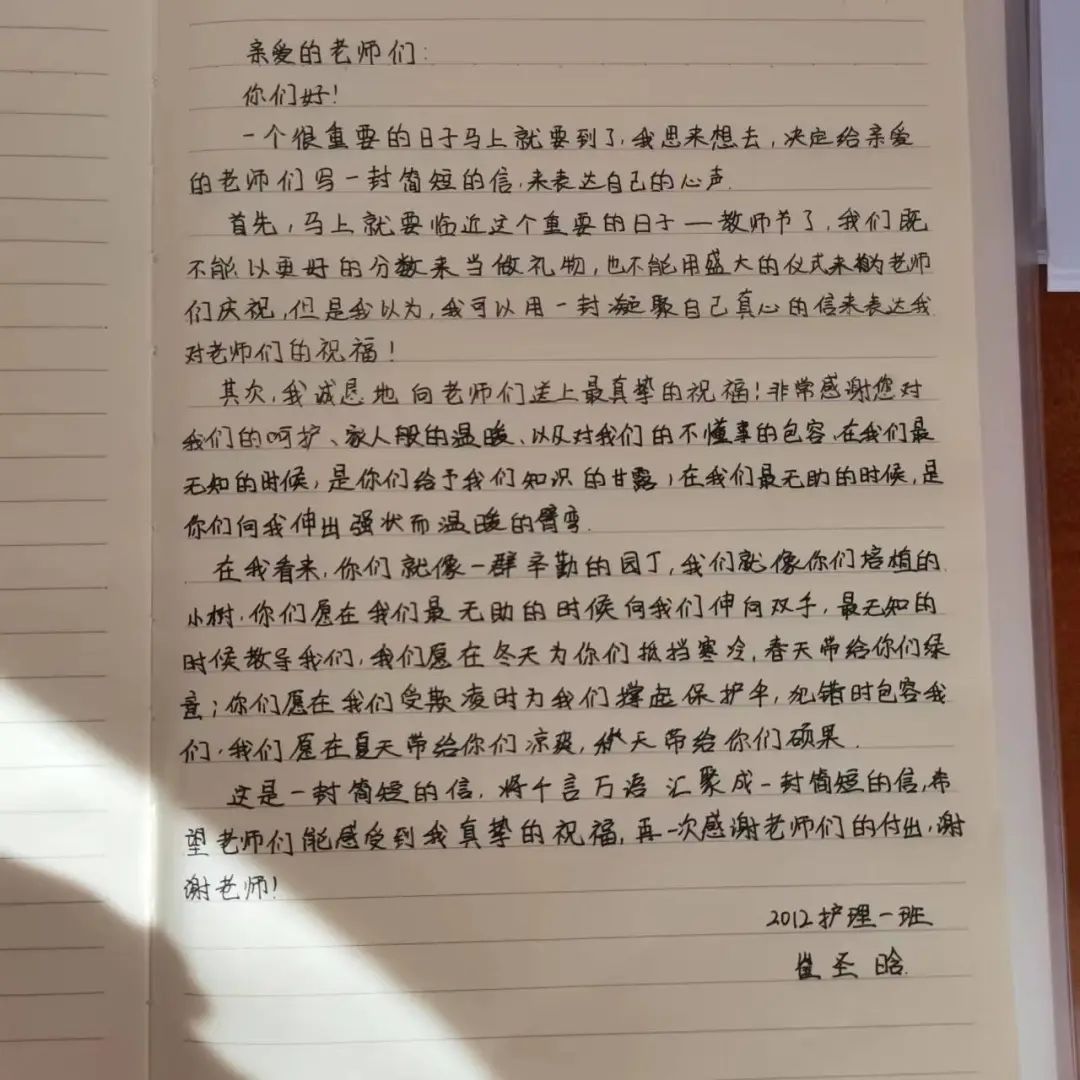 亲爱的老师们:
你们好!
一个很重要的日子马上就要到了,我思来想去,决定给亲爱
的老师们写一封简短的信,来表达自己的心声.
首先,马上就要临近这个重要的日子—教师节了,我们既
不能以更好的分数来当做礼物,也不能用盛大的仪式来为老师
们庆祝,但是我以为,我可以用一封凝聚自己真心的信来表达我
对老师们的祝福!
其次,我诚恳地向老师们送上最真挚的祝福!非常感谢您对
我们的呵护、家人般的温暖、以及对我们的不懂事的包容.在我们最
无知的时候,是你们给予我们知识的甘露;在我们最无助的时候,是
你们向我伸出强状而温暖的臂弯.
在我看来,你们就像一群辛勤的园丁,我们就像你们培植的
小树.你们愿在我们最无助的时候向我们伸向双手,最无知的
时候教导我们,我们愿在冬天为你们抵挡寒冷,春天带给你们绿
意;你们愿在我们受欺凌时为我们撑起保护伞,犯错时包容我
们,我们愿在夏天带给你们凉爽,秋天带给你们硕果.
这是一封简短的信,将千言万语汇聚成一封简短的信,希
望老师们能感受到我真挚的祝福,再一次感谢老师们的付出,谢
谢老师!
2012护理一班
崔圣晗